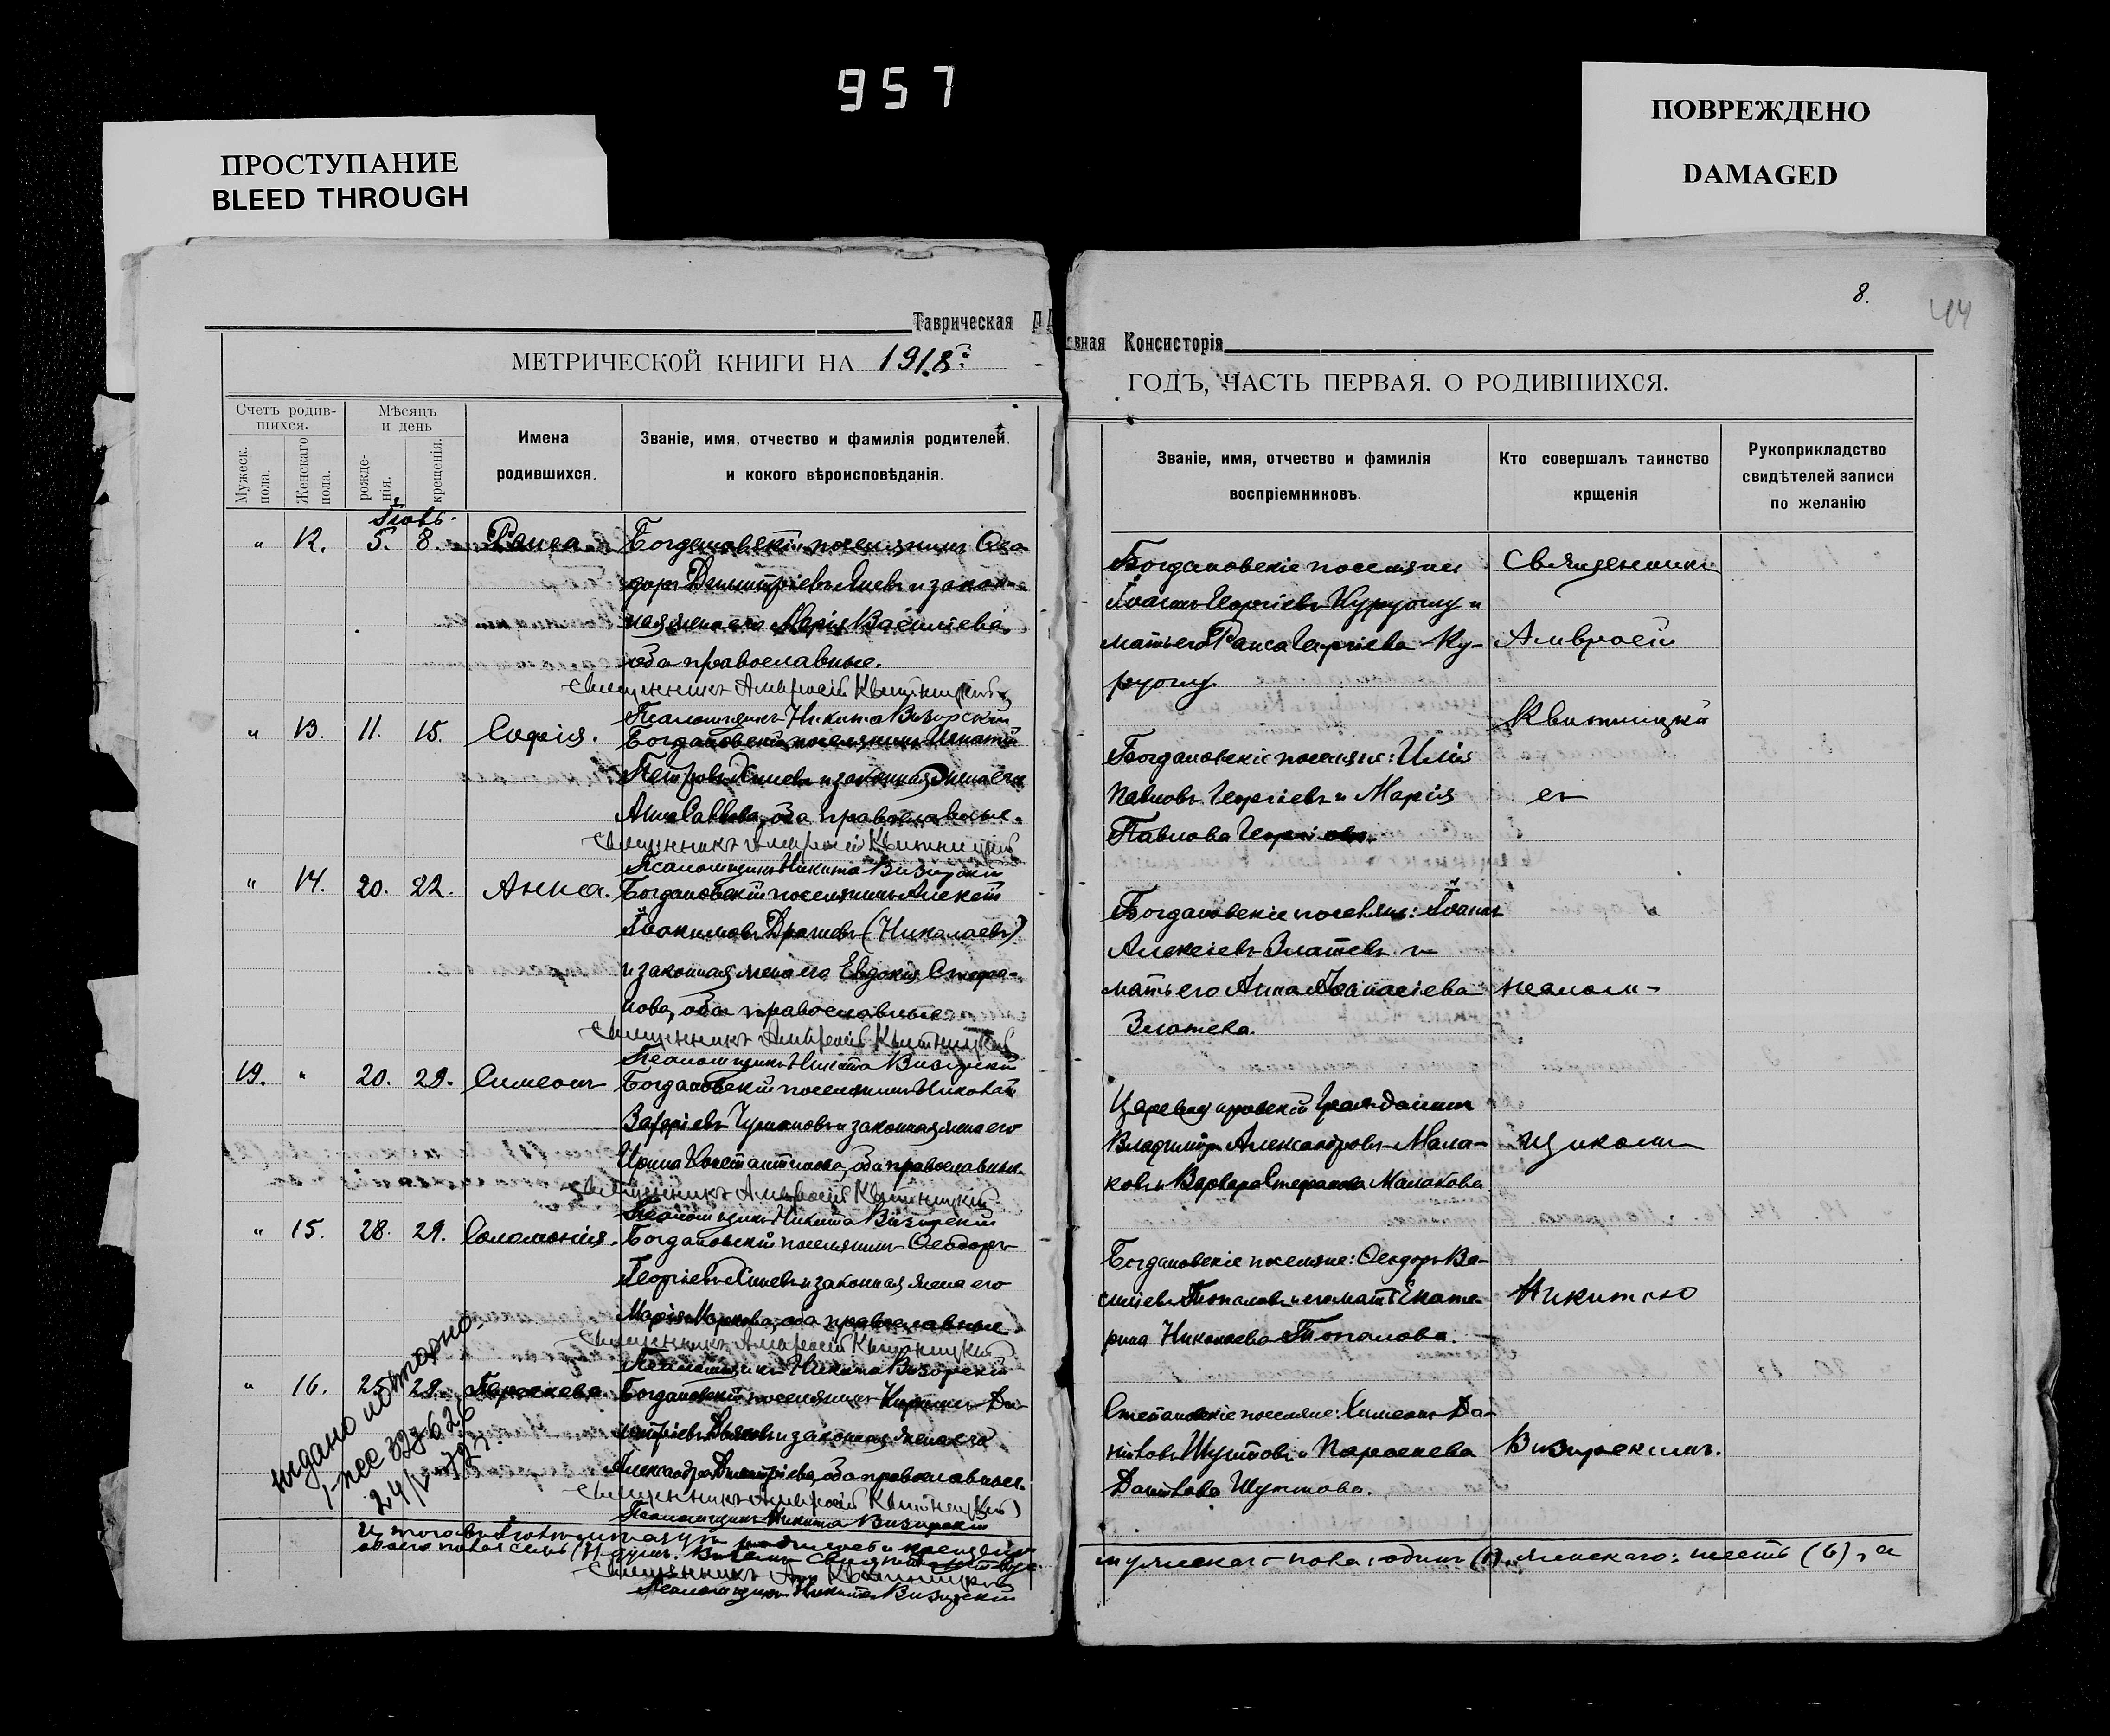 957
ПРОСТУПАНИЕ
BLEED THROUGH
ПОВРЕЖДЕНО
DAMAGED
8.
44
Таврическая Д
вная Консисторія
МЕТРИЧЕСКОЙ КНИГИ НА 1918
ГОДЪ, ЧАСТЬ ПЕРВАЯ. О РОДИВШИХСЯ.
Счетъ родив-
шихся.
Мужеск.
пола.
Женскаго
пола.
Мѣсяцъ
и день
рожде-
нія.
крещенія.
Имена
родившихся.
Званіе, имя, отчество и фамилія родителей,
и кокого вѣроисповѣданія.
Званіе, имя, отчество и фамилія
воспріемниковъ.
Кто совершалъ таинство
крщенія
Рукоприкладство
свидѣтелей записи
по желанію
" 12. 5. 8. Раиса Богдановскій поселянинъ Ѳео-
доръ Димитріевъ и закон-
ная жена его Марія Василіева,
оба православные.
Священникъ Амвросій Квитницкій
Псаломщикъ Никита Визирскій
Богдановскіе поселяне
Іоаннъ Георгіевъ Куруглу и
мать его Раиса Георгіева Ку-
руглу.
Священникъ
Амвросій
Квитницкій
" 13. 11. 15. Софія. Богдановскій поселянинъ Игнатій
Петровъ и законная жена его
Анна Саввова, оба православные.
Священникъ Амвросій Квитницкій
Псаломщикъ Никита Визирскій
Богдановскіе поселяне: Илія
Павловъ Георгіевъ и Марія
Павлова Георгіева.
съ
" 14. 20. 22. Анна. Богдановскій поселянинъ Алексѣй
Іоакимовъ Драгневъ (Николаевъ)
и законная жена его Евдокія Стефа-
нова, оба православные
Священникъ Амвросій Квитницкій
Псаломщикъ Никита Визирскій
Богдановскіе поселяне: Іоаннъ
Алексіевъ Златевъ и
мать его Анна Аѳанасіева
Златева.
псалом-
19. " 20. 29. Симеонъ Богдановскій поселянинъ Николай
Захаріевъ и законная жена его
Ирина Константинова, оба православные.
Священникъ Амвросій Квитницкій
Псаломщикъ Никита Визирскій
гражданинъ
Владиміръ Александровъ Мала-
ховъ и Варвара Стефанова Малахова
щикомъ
" 15. 28. 29. Соломонія. Богдановскій поселянинъ Ѳеодоръ
Георгіевъ и законная жена его
Марія Маркова, оба православные
Священникъ Амвросій Квитницкій
Псаломщикъ Никита Визирскій
Богдановскіе поселяне: Ѳеодоръ Ва-
силіевъ Топаловъ и его мать Екате-
рина Николаева Топалова.
Никитою
" 16. 25. 29. Параскева. Богдановскій поселянинъ Кириллъ Ди-
митріевъ и законная жена его
Александра Димитріева, оба православные.
Священникъ Амвросій Квитницкій
Псаломщикъ Никита Визирскій
Степановскіе поселяне: Симеонъ Да-
ниловъ Шуптовъ и Параскева
Данилова Шуптова.
Визирскимъ.
выдано повторно
1-ЯСС 323626
24/V-72 г.
Итого въ мѣсяцѣ родилось и крещено
мужскаго пола: одинъ (1), женскаго: шесть (6), а
обоего пола семь (7) душъ.
Священникъ Амв Квитницкій
Псаломщикъ Никита Визирскій